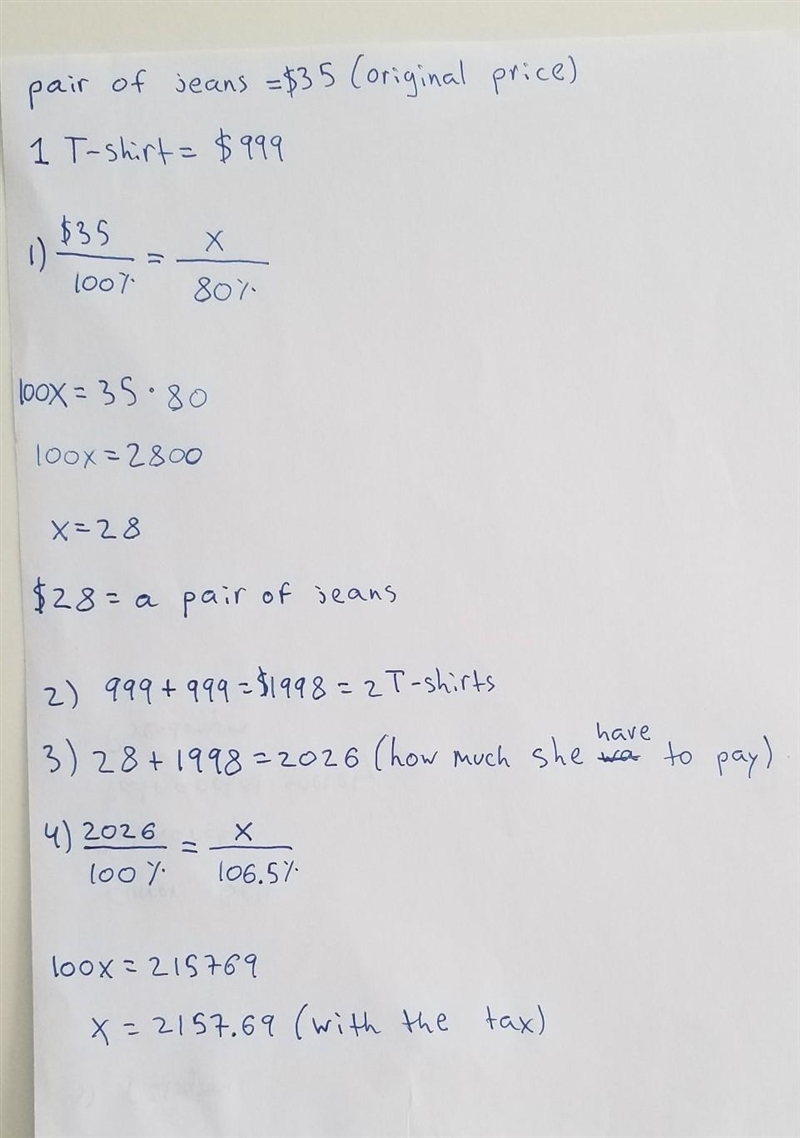 pair of jeans = $35 (original price)
1 T-shirt = $999
1) $35 / 100% = x / 80%
100x = 35 · 80
100x = 2800
x = 28
$28 = a pair of jeans
2) 999 + 999 = $1998 = 2 T-shirts
3) 28 + 1998 = 2026 (how much she have to pay)
4) 2026 / 100% = x / 106.5%
100x = 215769
x = 2157.69 (with the tax)